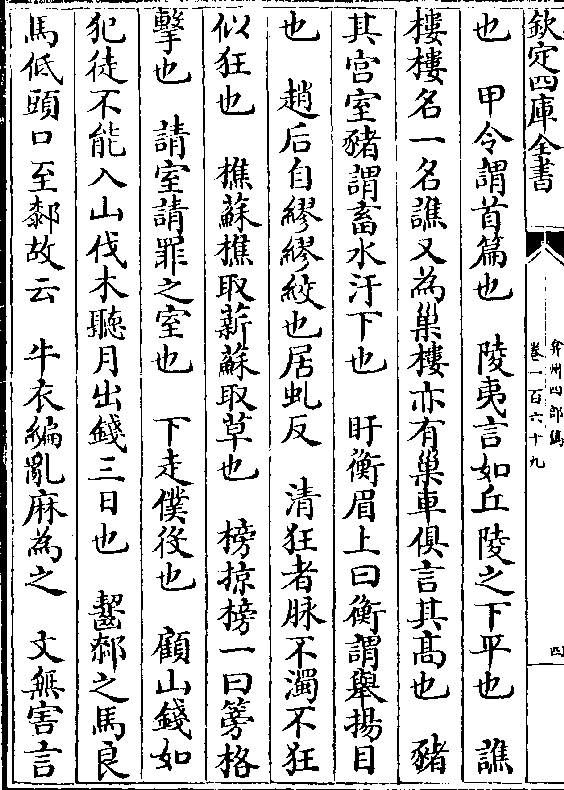 欽定四庫全書
弇州四部稿
卷一百六十九
四
也　甲令謂首篇也　陵夷言如丘陵之下平也　譙
樓樓名一名譙又為巢樓亦有巢車俱言其髙也　豬
其宫室豬謂畜水汙下也　盱衡眉上曰衡謂舉揚目
也　趙后自繆繆絞也居虬反　清狂者脉不濁不狂
似狂也　樵蘇樵取薪蘇取草也　榜掠榜一曰篣格
擊也　請室請罪之室也　下走僕役也　顧山錢如
犯徒不能入山伐木聽月出錢三日也　齧䣛之馬良
馬低頭口至䣛故云　牛衣編亂麻為之　文無害言